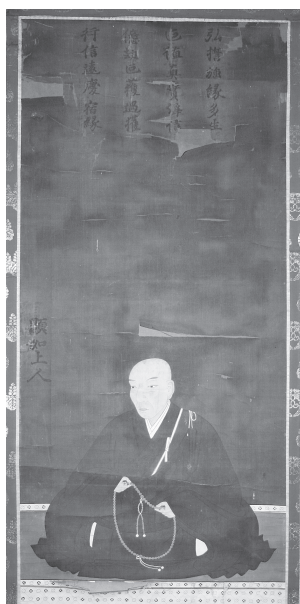 弘誓強縁多生
叵値真實淨信
億劫叵獲遇獲
行信遠慶宿縁
顯如上人